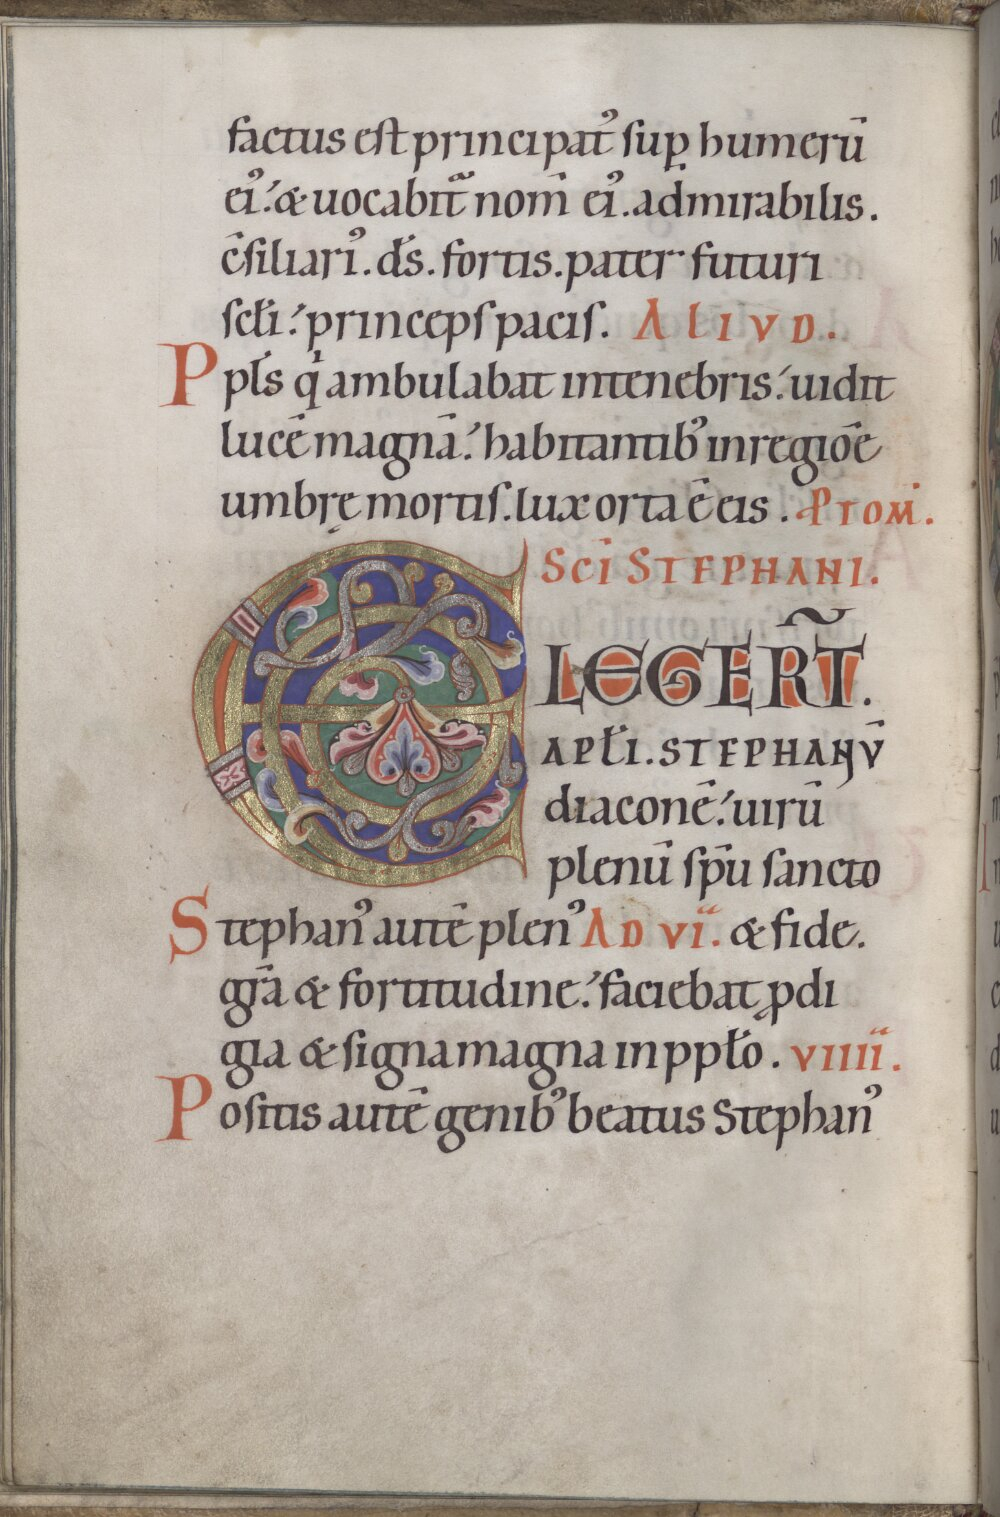 factus est principat᾽ sup̱ humerū
ei᾽. & uocabit᷒ nom̄ ei᾽. admirabilis.
c̄siliari᾽. d̄s. fortis. pater futuri
scł́i. princeps pacis. ALIVD.
Ppłs qͥ ambulabat intenebris. uidit
lucē magnā. habitantib᾽ inregiōe
umbrę mortis. lux orta ē eis. PROM̄.
SC̄I STEPHANI.
ELEGER̃T.
APŁI. STEPHANV̄
diaconē. uirū
plenū sp̄u sancto
Stephan᾽ autē plen᾽ AD VI. & fide.
gr̄a & fortitudine. faciebat ꝓdi
gia & signa magna in ppło. VIIII.
Positis autē genib᾽ beatus Stephan᾽